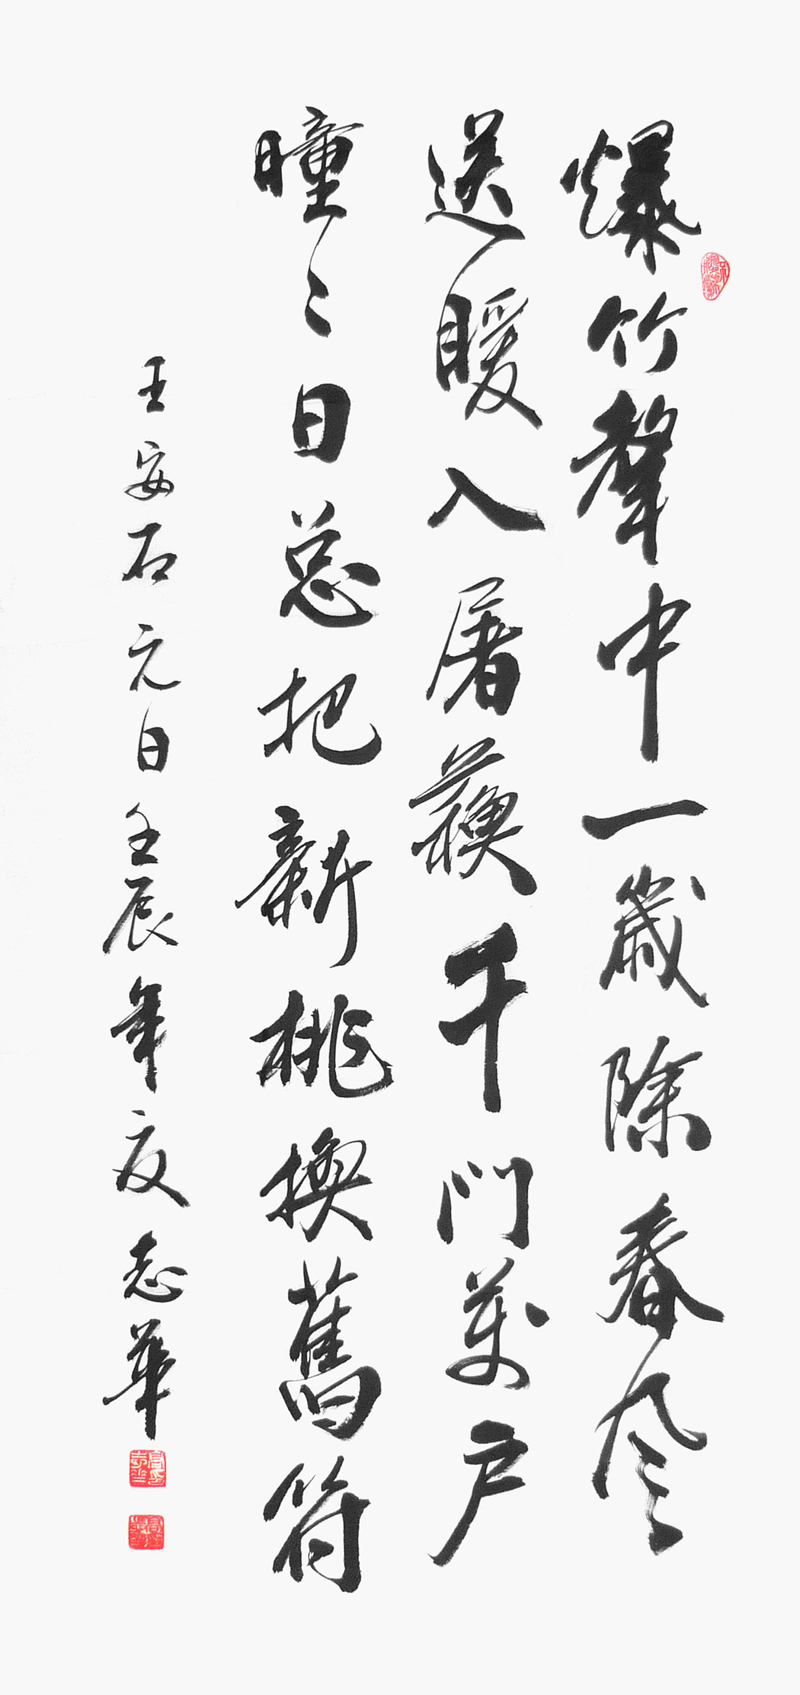 爆竹聲中一歲除春风
送暖入屠蘇千門萬戶
曈〻日总把新桃換舊符
王安石元日壬辰年夏志華